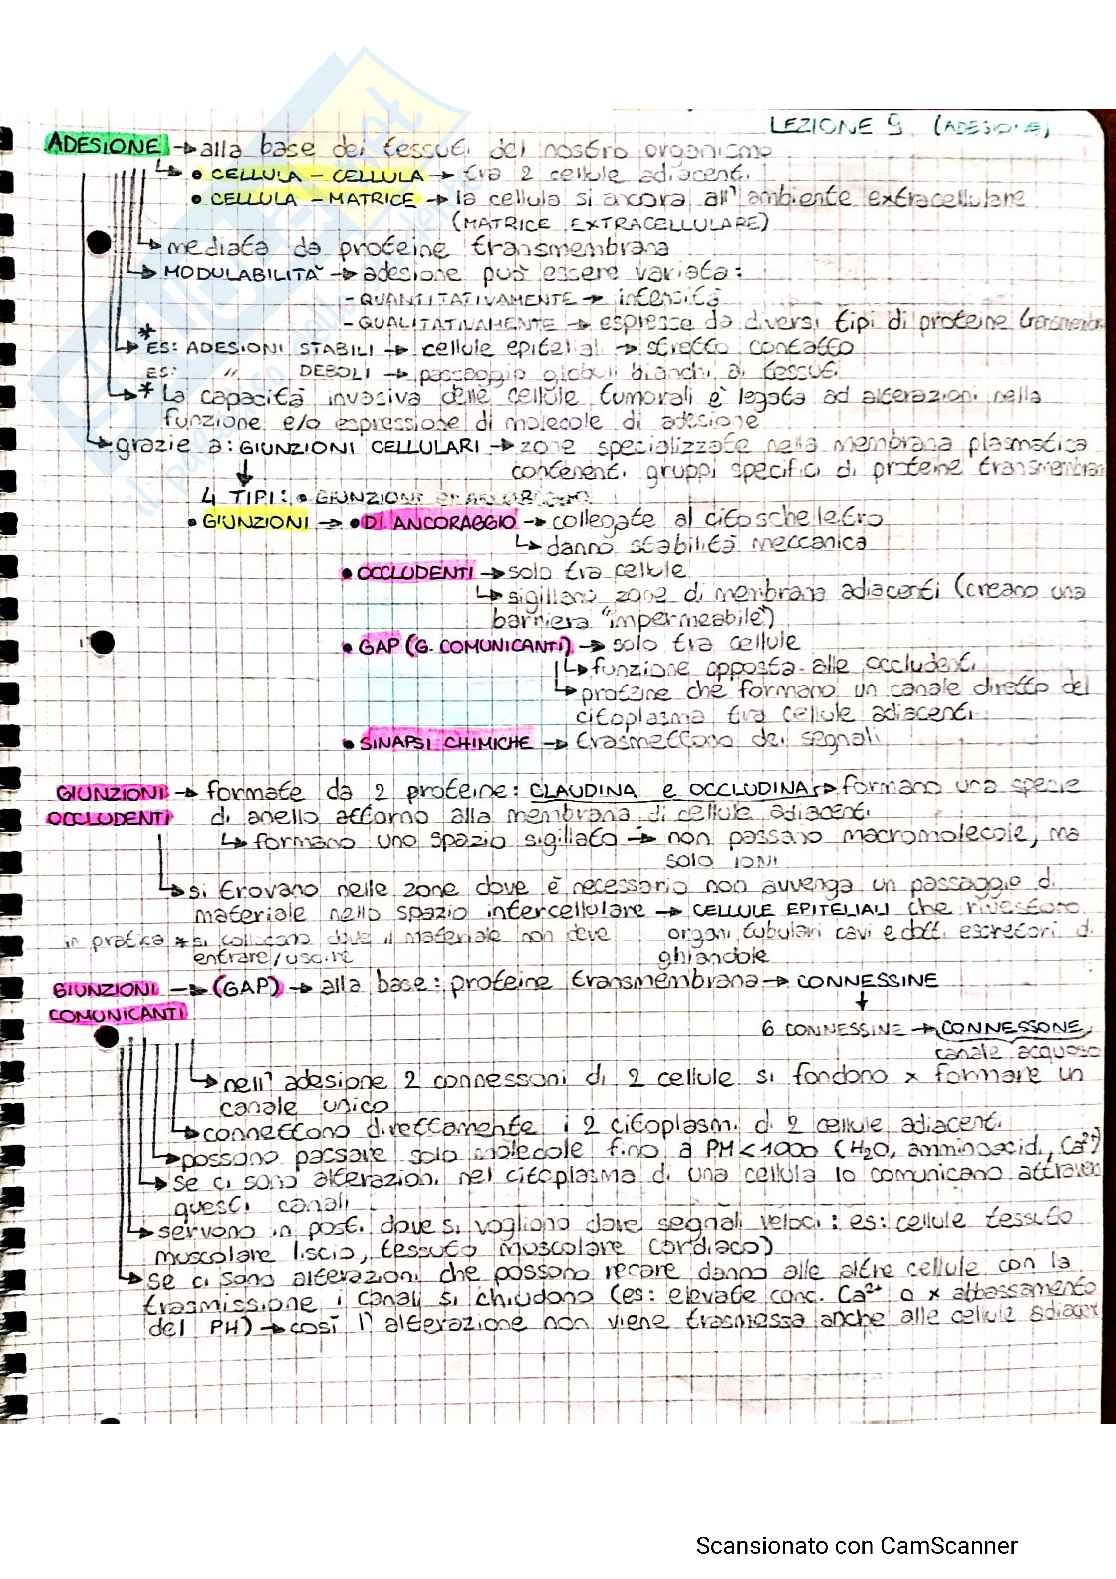 LEZIONE 9 (ADESIONE)
ADESIONE → alla base dei tessuti del nostro organismo
• CELLULA - CELLULA → tra 2 cellule adiacenti
• CELLULA - MATRICE → la cellula si ancora all'ambiente extracellulare
(MATRICE EXTRACELLULARE)
mediata da proteine transmembrana
MODULABILITA' → adesione può essere variata:
- QUANTITATIVAMENTE → intensità
- QUALITATIVAMENTE → espresse da diversi tipi di proteine transmembr
* ES: ADESIONI STABILI → cellule epiteliali → stretto contatto
ES: " DEBOLI → passaggio globuli bianchi ai tessuti
* La capacità invasiva delle cellule tumorali è legata ad alterazioni nella
funzione e/o espressione di molecole di adesione
grazie a: GIUNZIONI CELLULARI → zone specializzate nella membrana plasmatica
contenenti gruppi specifici di proteine transmembran
4 TIPI: • GIUNZIONI DI ANCORAGGIO
• GIUNZIONI → • DI ANCORAGGIO → collegate al citoscheletro
danno stabilità meccanica
• OCCLUDENTI → solo tra cellule
sigillano zone di membrana adiacenti (creano una
barriera "impermeabile")
• GAP (G. COMUNICANTI) → solo tra cellule
funzione opposta alle occludenti
proteine che formano un canale diretto del
citoplasma tra cellule adiacenti
• SINAPSI CHIMICHE → trasmettono dei segnali
GIUNZIONI → formate da 2 proteine: CLAUDINA e OCCLUDINA → formano una specie
OCCLUDENTI di anello attorno alla membrana di cellule adiacenti
formano uno spazio sigillato → non passano macromolecole, ma
solo IONI
si trovano nelle zone dove è necessario non avvenga un passaggio di
materiale nello spazio intercellulare → CELLULE EPITELIALI che rivestono
in pratica * si collocano dove il materiale non deve organi tubulari cavi e dotti escretori di
entrare/uscire ghiandole
GIUNZIONI → (GAP) → alla base: proteine transmembrana → CONNESSINE
COMUNICANTI
6 CONNESSINE → CONNESSONE
canale acquoso
nell'adesione 2 connessoni di 2 cellule si fondono x formare un
canale unico
connettono direttamente i 2 citoplasmi di 2 cellule adiacenti
possono passare solo molecole fino a PM<1000 (H₂O, amminoacidi, Ca²⁺)
se ci sono alterazioni nel citoplasma di una cellula lo comunicano attraverso
questi canali
servono in posti dove si vogliono dare segnali veloci: es: cellule tessuto
muscolare liscio, tessuto muscolare cardiaco)
se ci sono alterazioni che possono recare danno alle altre cellule con la
trasmissione i canali si chiudono (es: elevate conc. Ca²⁺ o x abbassamento
del PH) → così l'alterazione non viene trasmessa anche alle cellule adiacen
Scansionato con CamScanner